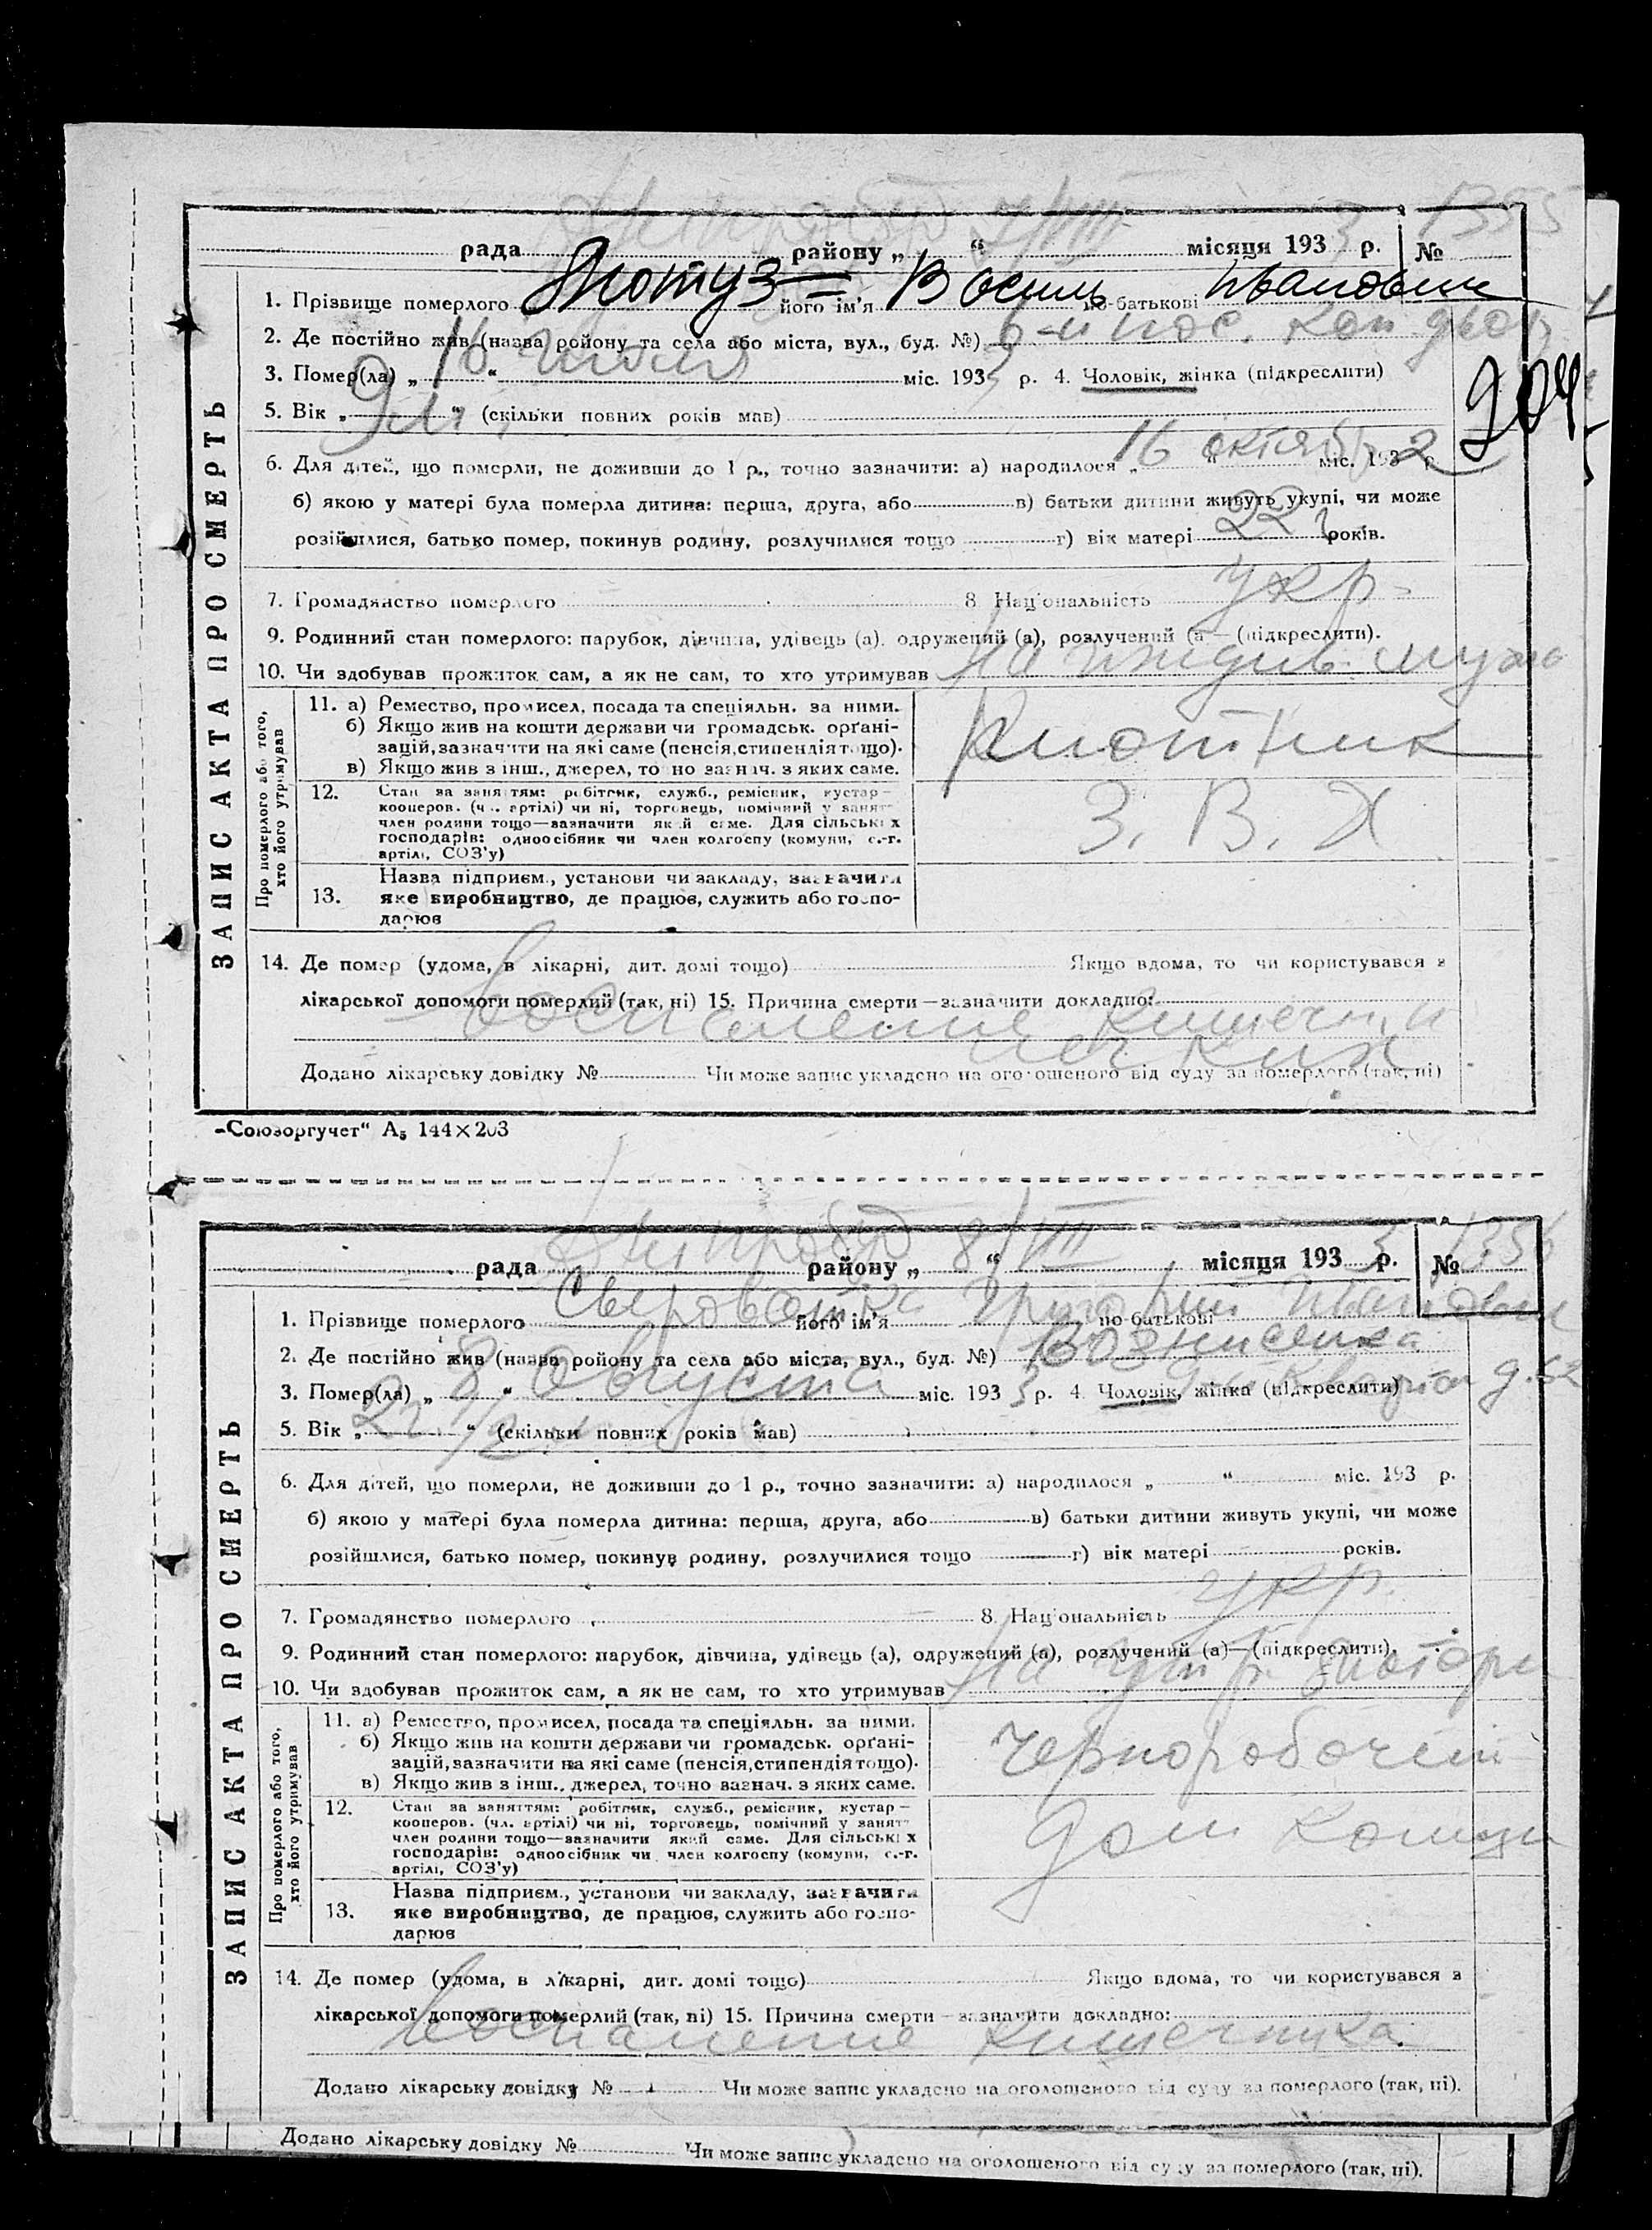 Дніпробуд 7/VIII 1355
рада району „ “ місяця 1933 р. №
1. Прізвище померлого його ім'я Василь по-батькові Иванович
2. Де постійно жив (назва ройону та села або міста, вул., буд. №) 6-й пос.
3. Помер(ла) „ 16 “ міс. 1933 р. 4. Чоловік, жінка (підкреслити)
5. Вік „ 9 м. “ (скільки повних років мав)
204
6. Для дітей, що померли, не доживши до 1 р., точно зазначити: а) народилося „ 16 “ октября міс. 1932 р.
б) якою у матері була померла дитина: перша, друга, або в) батьки дитини живуть укупі, чи може
розійшлися, батько помер, покинув родину, розлучилися тощо г) вік матері 22 років.
7. Громадянство померлого 8 Національність укр.
9. Родинний стан померлого: парубок, дівчина, удівець (а), одружений (а), розлучений (а — (підкреслити).
10. Чи здобував прожиток сам, а як не сам, то хто утримував На иждив. мужа
ЗАПИС АКТА ПРО СМЕРТЬ
Про померлого або того, хто його утримував
11. а) Ремество, промисел, посада та спеціяльн. за ними.
б) Якщо жив на кошти держави чи громадськ. орґані-
зацій, зазначити на які саме (пенсія, стипендія тощо).
в) Якщо жив з інш., джерел, точно зазнач. з яких саме.
Плотник
12. Стан за заняттям: робітник, служб., ремісник, кустар—
кооперов. (чл. артілі) чи ні, торговець, помічний у занят-
член родини тощо—зазначити який саме. Для сільських
господарів: одноосібник чи член колгоспу (комуни, с.-г.
артілі, СОЗ'у)
З. В. Х
13. Назва підприєм., установи чи закладу, зазначити
яке виробництво, де працює, служить або госпо-
дарює
14. Де помер (удома, в лікарні, дит. домі тощо) Якщо вдома, то чи користувався з
лікарської допомоги померлий (так, ні) 15. Причина смерти—зазначити докладно:
воспаление кишечн.
Додано лікарську довідку № Чи може запис укладено на оголошеного від суду за померлого (так, ні)
„Союзоргучет“ А₅ 144×203
Дніпробуд 8/VIII 1356
рада району „ “ місяця 1933 р. №
1. Прізвище померлого його ім'я Григорий по-батькові Иванович
2. Де постійно жив (назва ройону та села або міста, вул., буд. №) Вознисенка
3. Помер(ла) „ 8 “ Августа міс. 1933 р. 4 Чоловік, жінка (підкреслити)
5. Вік „ “ (скільки повних років мав)
6. Для дітей, що померли, не доживши до 1 р., точно зазначити: а) народилося „ “ міс. 193 р.
б) якою у матері була померла дитина: перша, друга, або в) батьки дитини живуть укупі, чи може
розійшлися, батько помер, покинув родину, розлучилися тощо г) вік матері років.
7. Громадянство померлого 8. Національність укр.
9. Родинний стан померлого: парубок, дівчина, удівець (а), одружений (а), розлучений (а)—(підкреслити).
10. Чи здобував прожиток сам, а як не сам, то хто утримував На утр. матери
ЗАПИС АКТА ПРО СМЕРТЬ
Про померлого або того, хто його утримував
11. а) Ремество, промисел, посада та спеціяльн. за ними.
б) Якщо жив на кошти держави чи громадськ. орґані-
зацій, зазначити на які саме (пенсія, стипендія тощо).
в) Якщо жив з інш., джерел, точно зазнач. з яких саме.
Чернорабочий
12. Стан за заняттям: робітник, служб., ремісник, кустар—
кооперов. (чл. артілі) чи ні, торговець, помічний у занят-
член родини тощо—зазначити який саме. Для сільських
господарів: одноосібник чи член колгоспу (комуни, с.-г.
артілі, СОЗ'у)
Дом
13. Назва підприєм., установи чи закладу, зазначити
яке виробництво, де працює, служить або госпо-
дарює
14. Де помер (удома, в лікарні, дит. домі тощо) Якщо вдома, то чи користувався з
лікарської допомоги померлий (так, ні) 15. Причина смерти—зазначити докладно:
воспаление кишечника
Додано лікарську довідку № Чи може запис укладено на оголошеного від суду за померлого (так, ні).
Додано лікарську довідку № Чи може запис укладено на оголошеного від суду за померлого (так, ні).